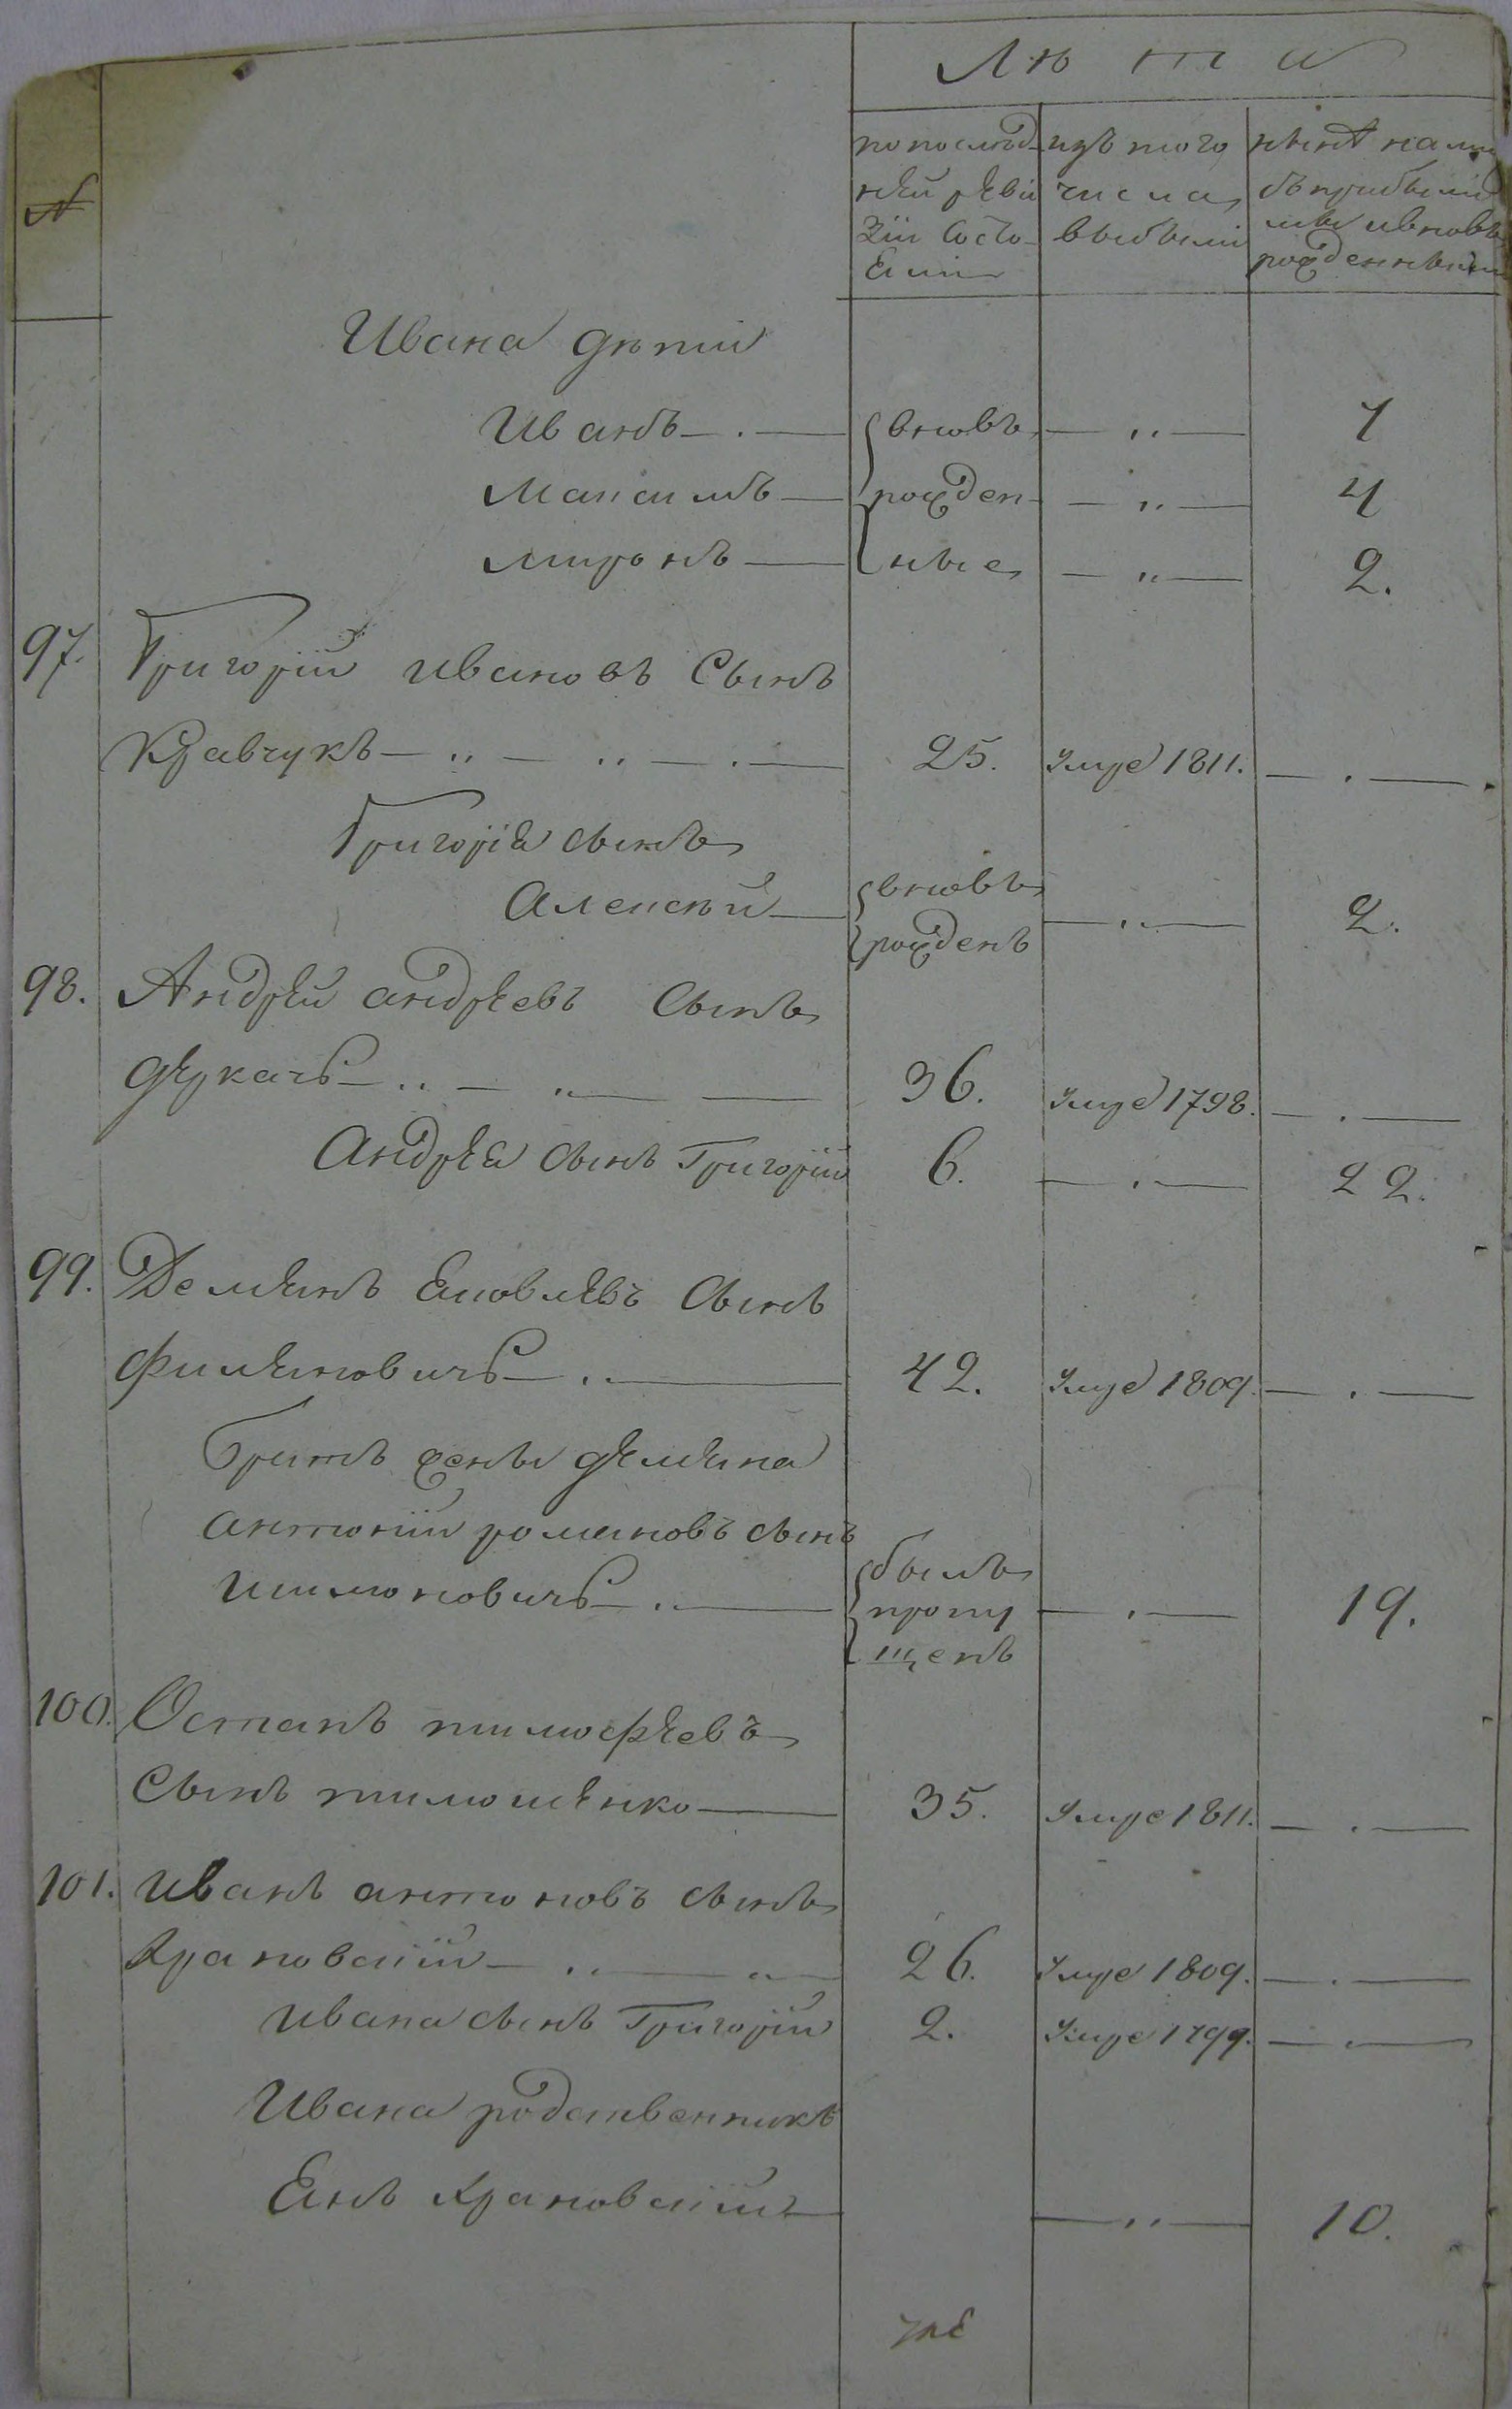 Лѣта
№
по послѣд-
ней реви
зіи состо-
яли
изъ того
числа
выбыли
нынѣ на ли
съ прибылы
ми и вновь
рожденными
Ивана дѣти
Иванъ — . — вновь — „ — 7
Максимъ — рожден- — „ — 4
Миронъ — ные — „ — 2.
97. Григорій Ивановъ Сынъ
Кравчукъ — „ — „ — . — 25. Умре 1811. — . —
Григорія сынъ
Алексѣй — вновь
рожденъ — . — 2.
98. Андрей андреевъ Сынъ
дѣркачъ — „ — „ — — 36. Умре 1798. — . —
Андрея сынъ Григорій 6. — . — 22.
99. Демянъ Яковлевъ Сынъ
Филяновичъ — „ — 42. Умре 1809. — . —
Братъ жены демяна
антоній романовъ сынъ
шимоновичъ — . — былъ
пропу
щенъ — . — 19.
100. Остапъ тимофеевъ
Сынъ тимошенко — 35. Умре 1811. — . —
101. Иванъ антоновъ сынъ
Крановскій — „ — „ — 26. Умре 1809. — . —
Ивана сынъ Григорій 2. Умре 1799. — . —
Ивана родственникъ
Янъ Крановскій — — „ — 10.